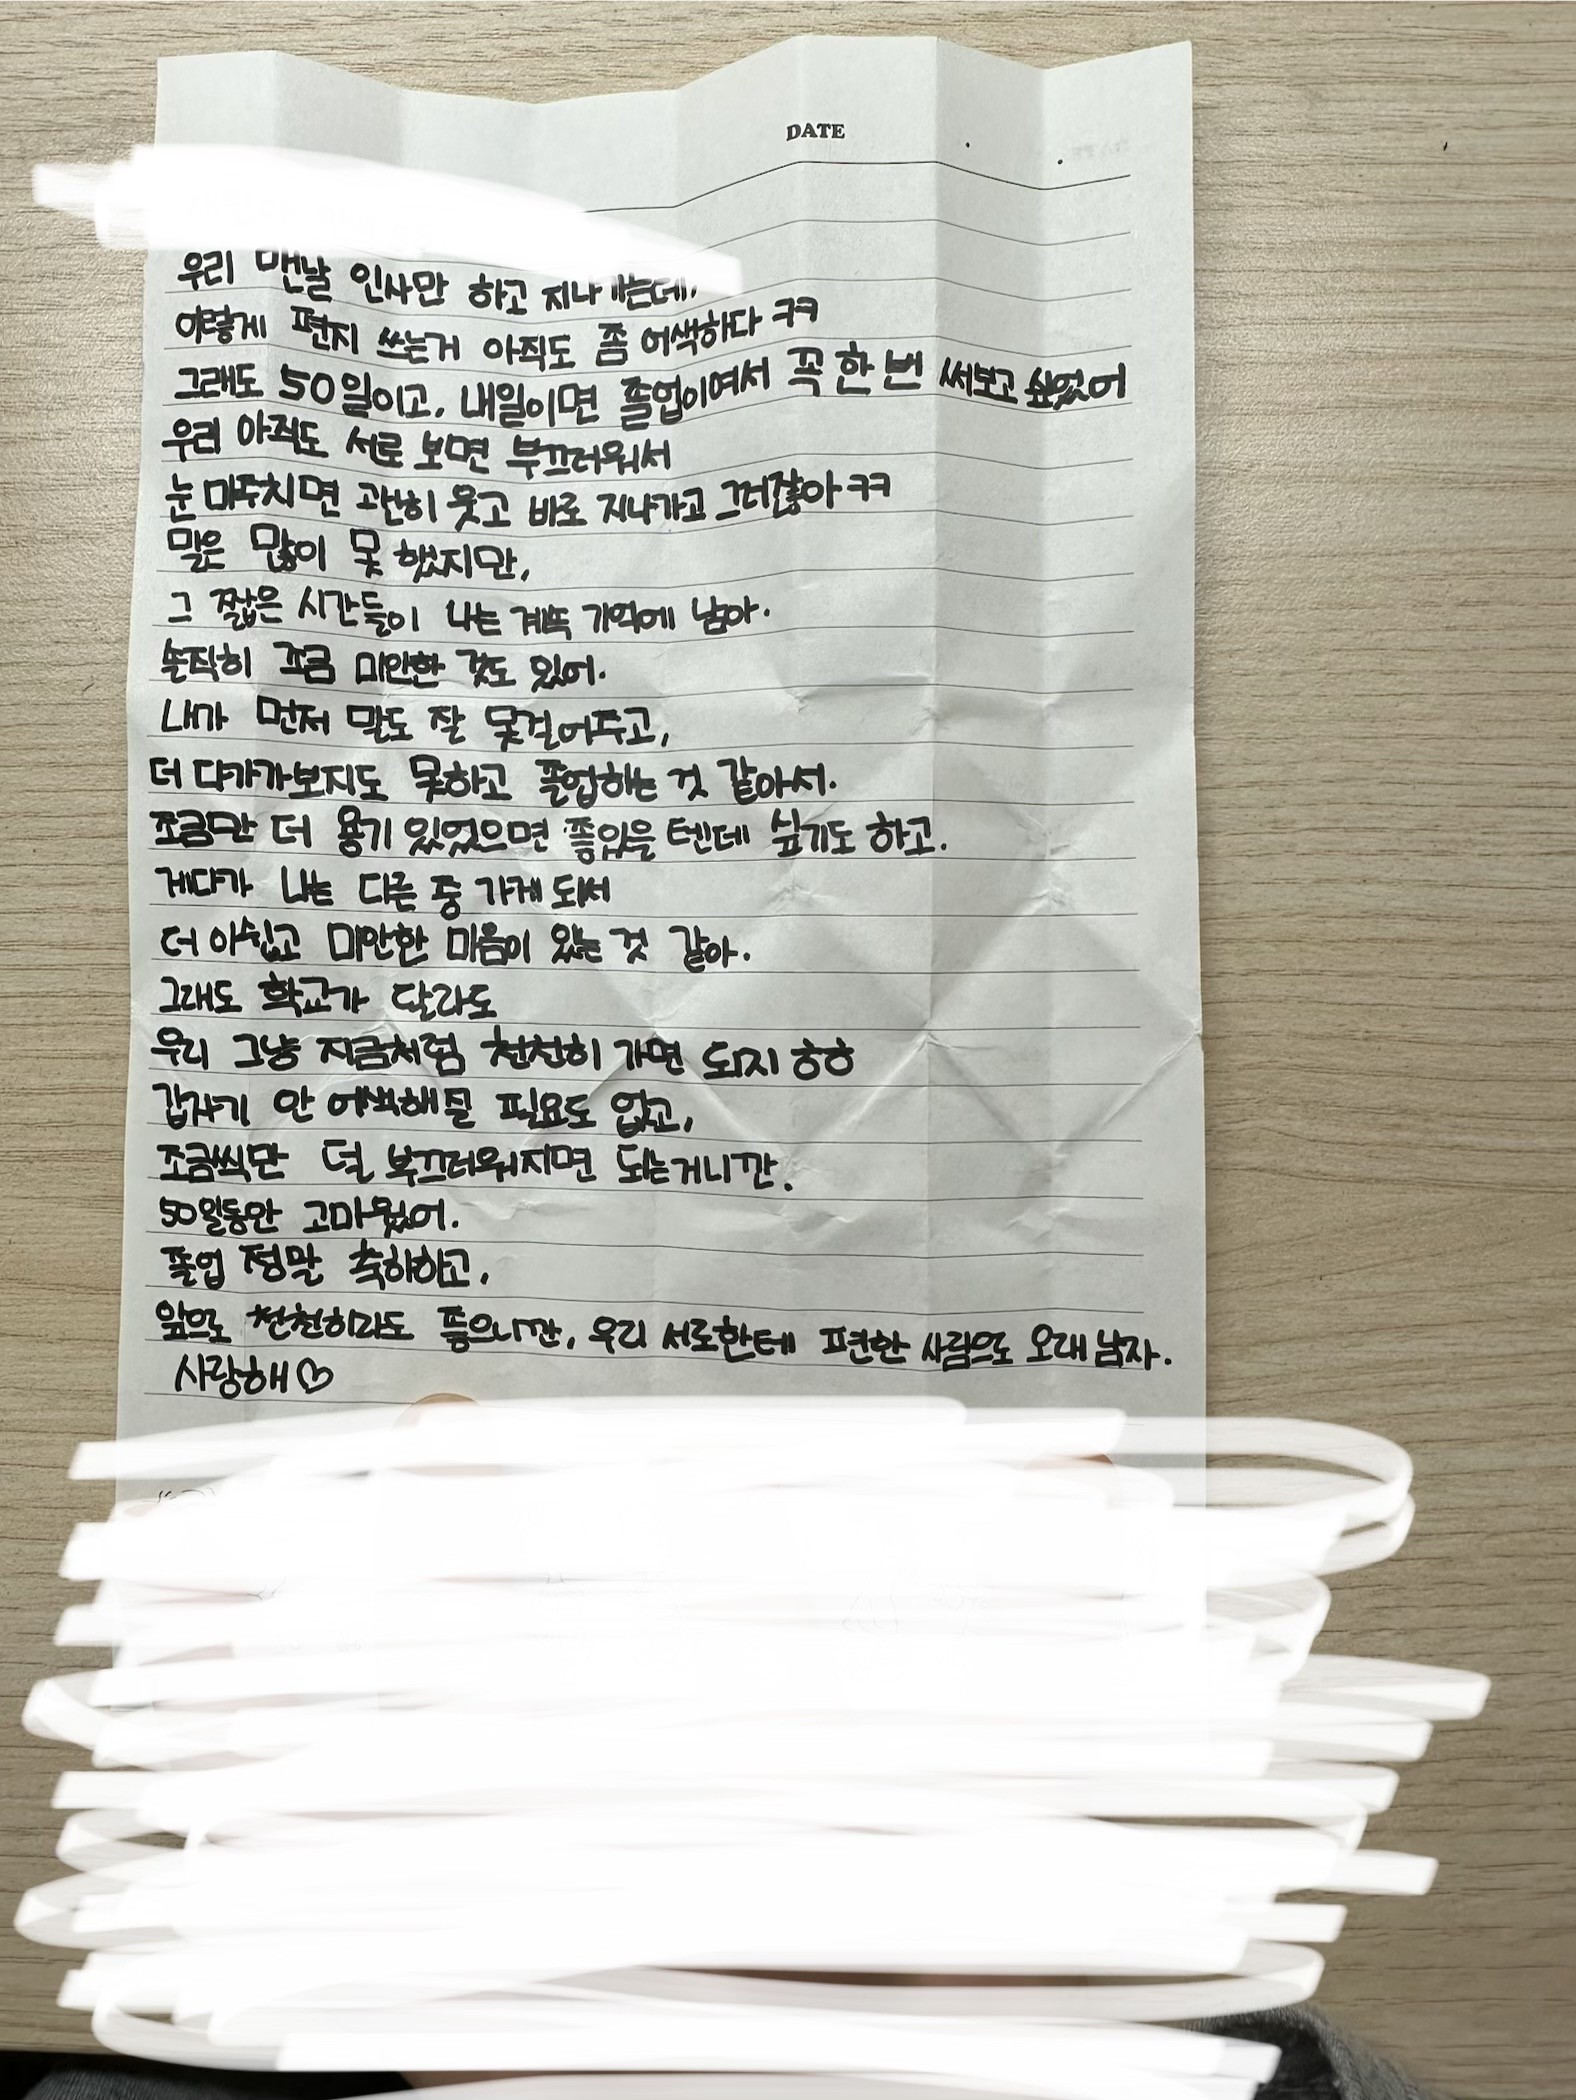 DATE
우리 맨날 인사만 하고 지나가는데,
이렇게 편지 쓰는거 아직도 좀 어색하다 ㅋㅋ
그래도 50일이고, 내일이면 졸업이여서 꼭 한 번 써보고 싶었어
우리 아직도 서로 보면 부끄러워서
눈 마주치면 괜히 웃고 바로 지나가고 그러잖아 ㅋㅋ
말은 많이 못 했지만,
그 짧은 시간들이 나는 계속 기억에 남아.
솔직히 조금 미안한 것도 있어.
내가 먼저 말도 잘 못걸어주고,
더 다가가보지도 못하고 졸업하는 것 같아서.
조금만 더 용기 있었으면 좋았을 텐데 싶기도 하고.
게다가 나는 다른 중 가게 되서
더 아쉽고 미안한 마음이 있는 것 같아.
그래도 학교가 달라도
우리 그냥 지금처럼 천천히 가면 되지 ㅎㅎ
갑자기 안 어색해질 필요도 없고,
조금씩만 덜 부끄러워지면 되는거니깐.
50일동안 고마웠어.
졸업 정말 축하하고,
앞으로 천천히라도 좋으니깐, 우리 서로한테 편한 사람으로 오래 남자.
사랑해♡